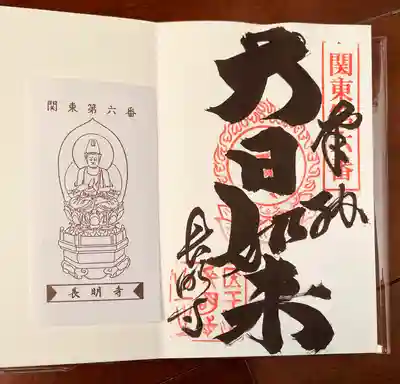 関東第六番
長明寺
関東第六番
奉拝
大日如来
長明寺